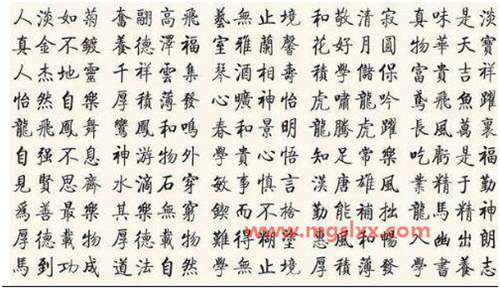 人淡如菊 奮翮高飛 藝無止境 和敬清寂 真味是淡
真金不鍍 養德澤福 室雅蘭馨 花好月圓 物華天寶
人杰地靈 千祥雲集 琴 相壽 積學儲 富貴吉祥
怡然自樂 厚積薄發 曠神怡 虎嘯龍吟 鳶飛魚躍
龍飛鳳舞 鸞鳳和鳴 春和景明 龍騰虎躍 長風萬裏
自强不息 神游物外 學貴心悟 知足常樂 吃虧是福
見賢思齊 水滴石穿 敏事慎言 漢唐雄風 業精于勤
爲善最樂 其樂無窮 鍥而不捨 勤能補拙 龍馬精神
厚德載物 厚德載物 難得糊塗 風和暢 幽出朗
馬到功成 道法自然 學無止境 厚積薄發 學書養志
www.mgslxx.com